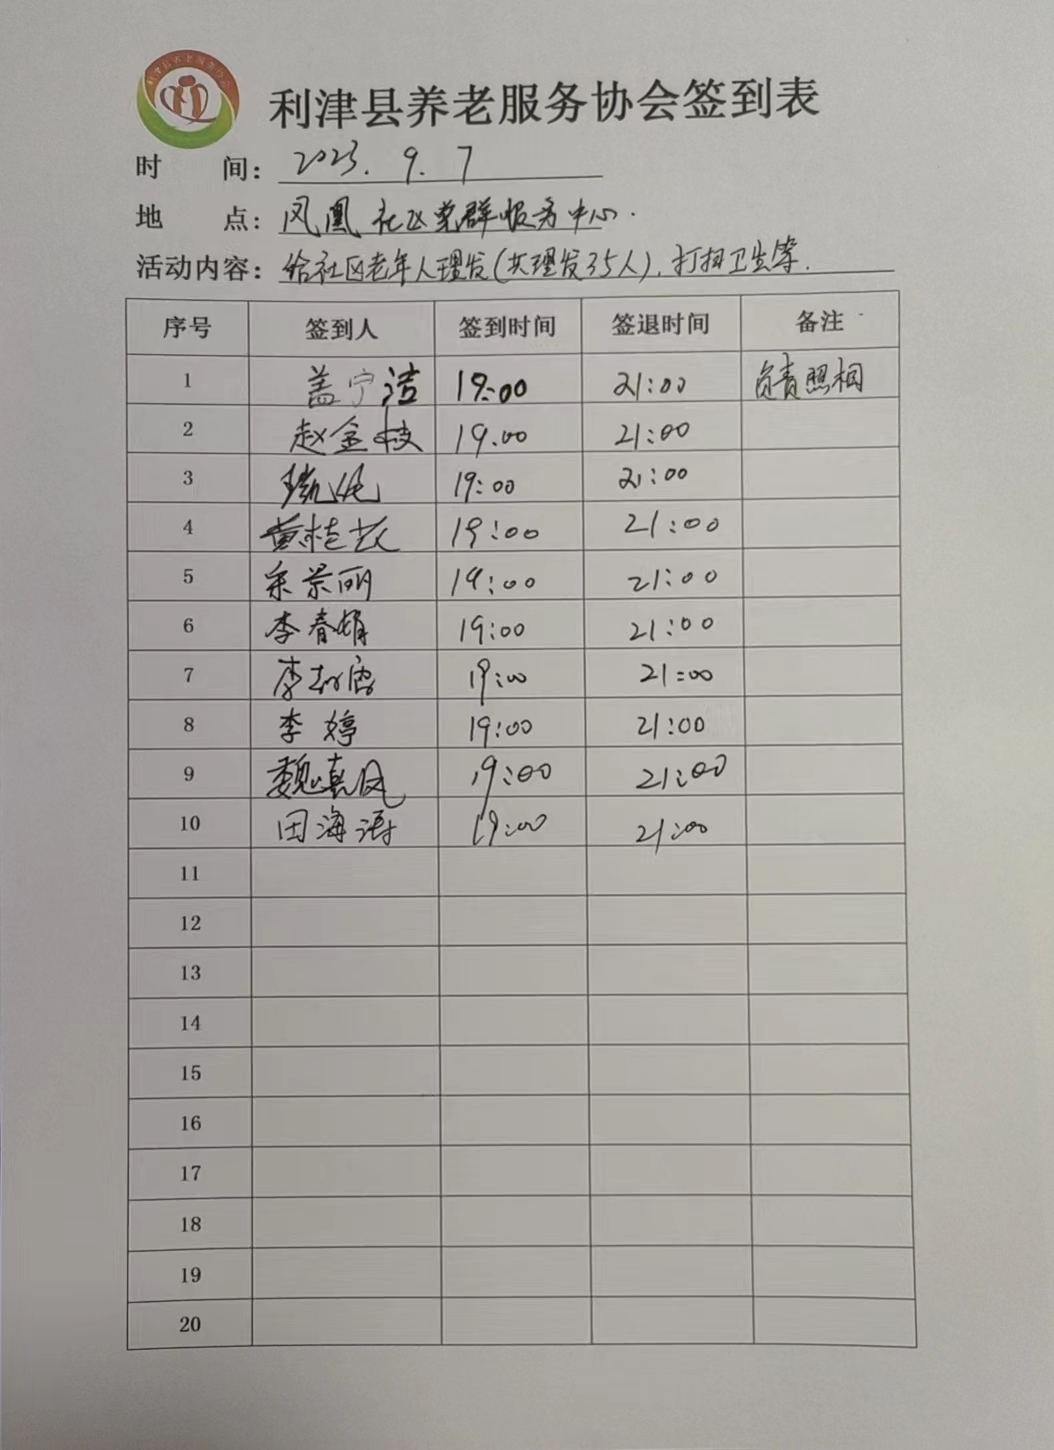 利津县养老服务协会
利津县养老服务协会签到表
时 间: 2023.9.7
地 点: 凤凰社区党群服务中心.
活动内容: 给社区老年人理发(共理发35人).打扫卫生等.
序号 签到人 签到时间 签退时间 备注
1 盖宁洁 19:00 21:00 负责照相
2 赵金枝 19.00 21:00
3 19:00 21:00
4 黄桂 19:00 21:00
5 景丽 19:00 21:00
6 李春娟 19:00 21:00
7 李 19:00 21:00
8 李婷 19:00 21:00
9 魏真凤 19:00 21:00
10 田海涛 19:00 21:00
11
12
13
14
15
16
17
18
19
20